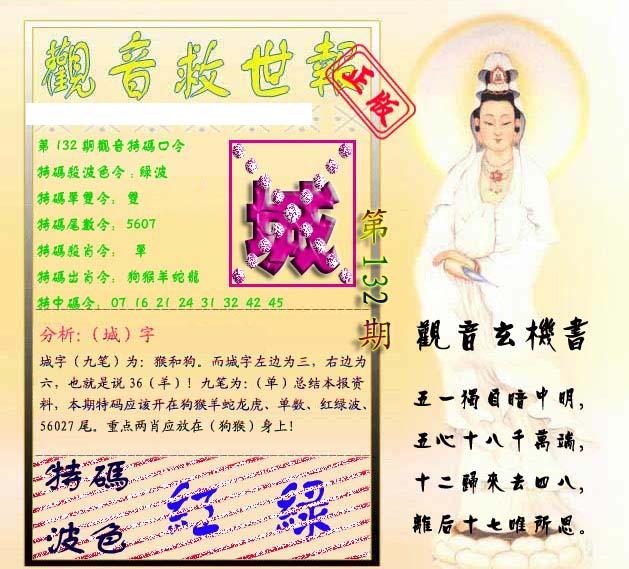 觀音救世報
正版
第132期觀音特碼口令
特碼殺波色令:綠波
特碼單雙令: 雙
特碼尾數令: 5607
特碼殺肖令: 單
特碼出肖令: 狗猴羊蛇龍
特中碼令: 07 16 21 24 31 32 42 45
城
第132期
分析:（城）字
城字（九笔）为：猴和狗。而城字左边为三，右边为
六，也就是说36（羊）！九笔为：（单）总结本报资
料，本期特码应该开在狗猴羊蛇龙虎、单数、红绿波、
56027尾。重点两肖应放在（狗猴）身上！
特碼
波色
紅 綠
觀音玄機書
五一獨目暗中明，
五心十八千萬端，
十二歸來去四八，
離后十七唯所思。